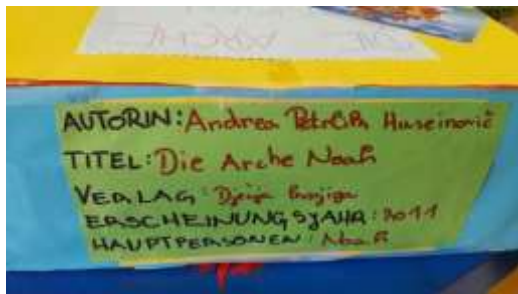 DIE ARCHE
AUTORIN: Andrea Petrlik Huseinović
TITEL: Die Arche Noah
VERLAG: Dječja knjiga
ERSCHEINUNGSJAHR: 2011
HAUPTPERSONEN: Noah